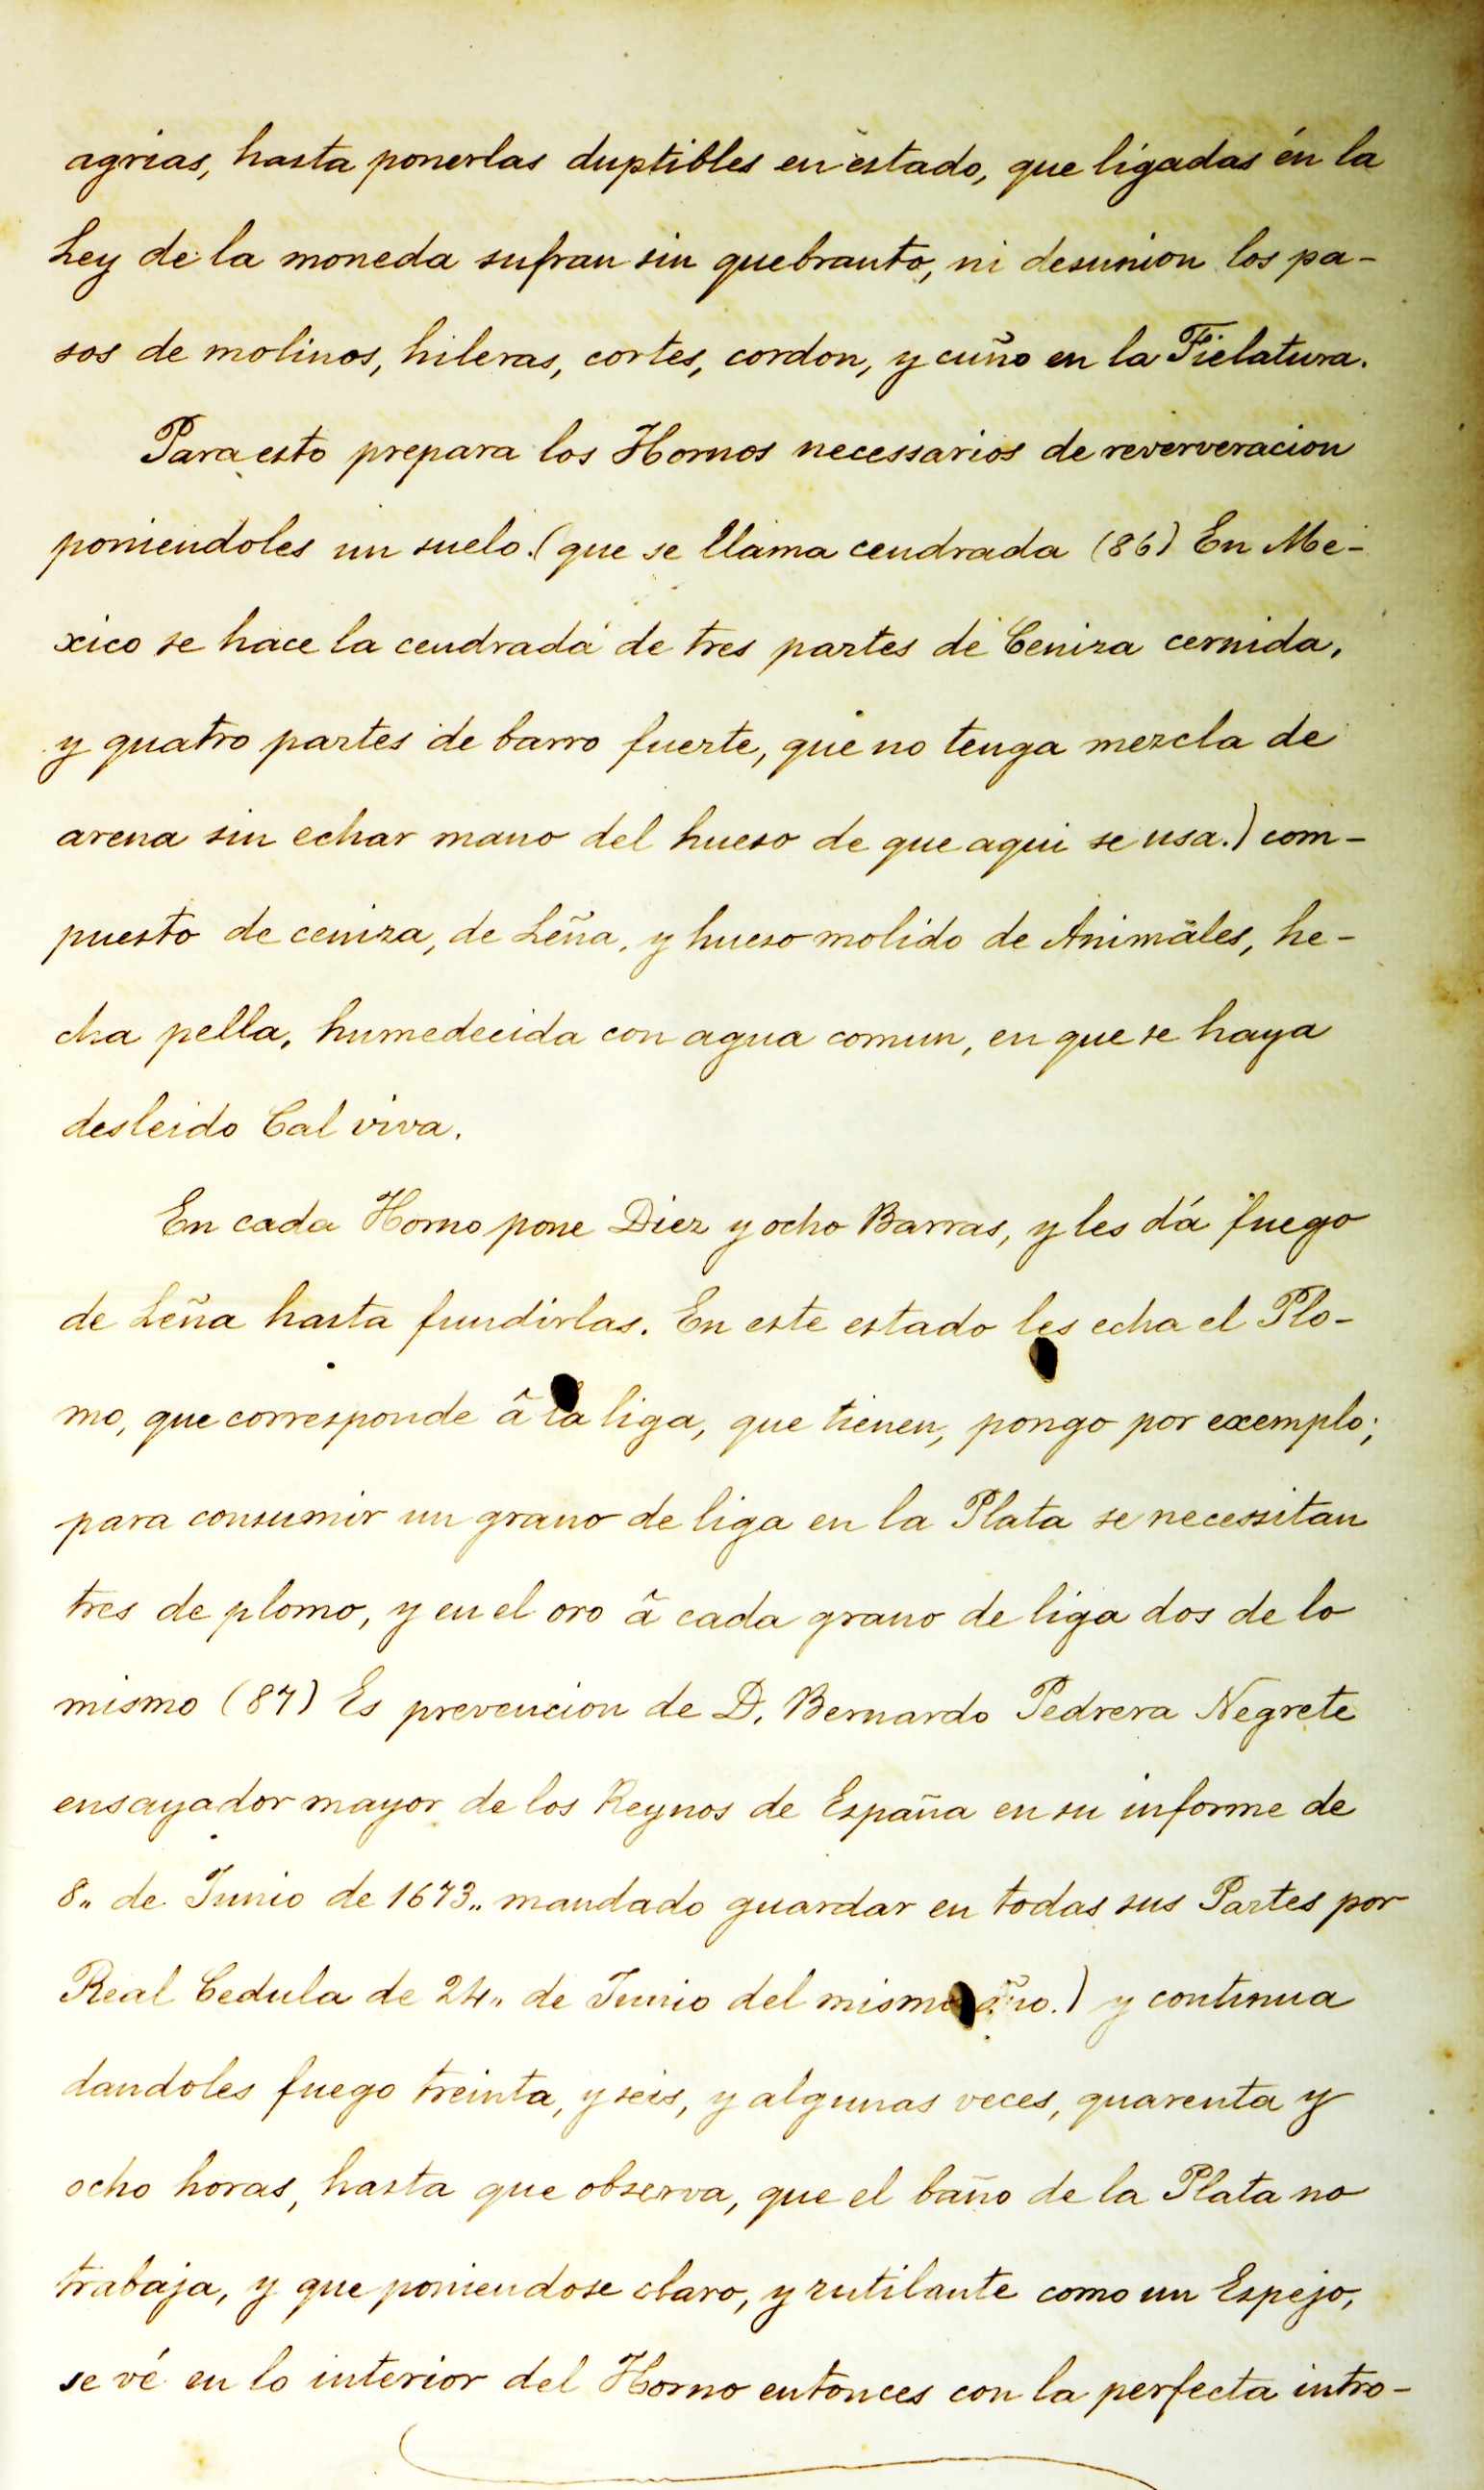 agrias, hasta ponerlas duptibles en estado, que ligadas én la
Ley de la moneda sufran sin quebranto, ni desunion los pa-
sos de molinos, hileras, cortes, cordon, y cuño en la Fielatura.
Para esto prepara los Hornos necessarios de reververacion
poniendoles un suelo. (que se llama cendrada (86) En Me-
xico se hace la cendrada de tres partes de Ceniza cernida,
y quatro partes de barro fuerte, que no tenga mezcla de
arena sin echar mano del hueso de que aqui se usa.) com-
puesto de ceniza, de Leña, y hueso molido de Animales, he-
cha pella, humedecida con agua comun, en que se haya
desleido Cal viva.
En cada Horno pone Diez y ocho Barras, y les dá fuego
de Leña hasta fundirlas. En este estado les echa el Plo-
mo, que corresponde â la liga, que tienen, pongo por exemplo;
para consumir un grano de liga en la Plata se necessitan
tres de plomo, y en el oro â cada grano de liga dos de lo
mismo (87) Es prevencion de D. Bernardo Pedrera Negrete
ensayador mayor de los Reynos de España en su informe de
8,, de Junio de 1673,, mandado guardar en todas sus Partes por
Real Cedula de 24,, de Junio del mismo año.) y continua
dandoles fuego treinta, y seis, y algunas veces, quarenta y
ocho horas, hasta que observa, que el baño de la Plata no
trabaja, y que poniendose claro, y rutilante como un Espejo,
se vé en lo interior del Horno entonces con la perfecta intro-